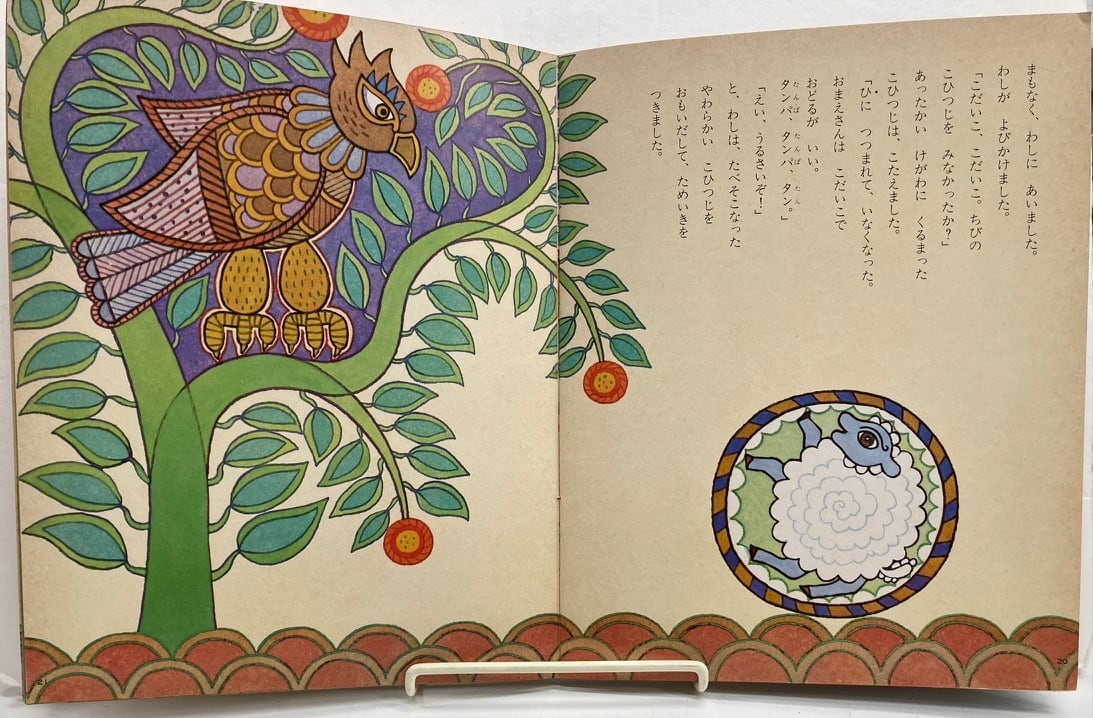 まもなく、わしに　あいました。
わしが　よびかけました。
「こだいこ、こだいこ。ちびの
こひつじを　みなかったか？」
あったかい　けがわに　くるまった
こひつじは、こたえました。
「ひに　つつまれて、いなくなった。
おまえさんは　こだいこで
おどるが　いい。
たんぱ　たんぱ　たん
タンパ、タンパ、タン。」
「えい、うるさいぞ！」
と、わしは、たべそこなった
やわらかい　こひつじを
おもいだして、ためいきを
つきました。
21
20